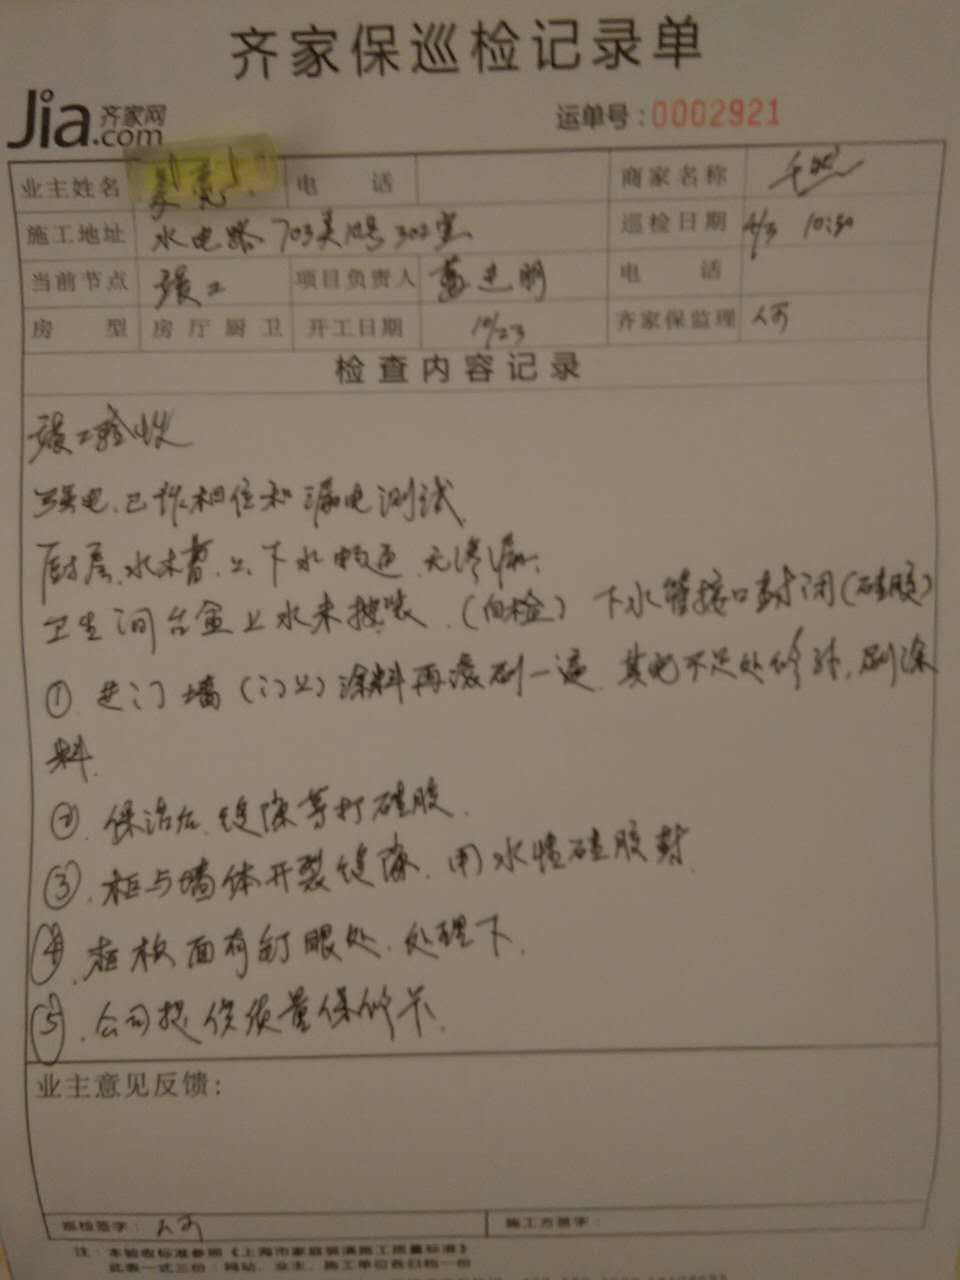 齐家保巡检记录单
Jia.com 齐家网
运单号:0002921
业主姓名 电话 商家名称
施工地址 水电路703弄 302室 巡检日期 4/3 10:30
当前节点 竣工 项目负责人 电话
房型 房厅厨卫 开工日期 10/23 齐家保监理
检查内容记录
竣工验收
强电.已作相位和漏电测试
厨房.水未暂.上.下水畅通.无渗漏.
卫生间台盆上水未按装.(自检) 下水管接口封闭(硅胶)
① 进门墙(门上)涂料再滚刷一遍.其它不足处修补.刷涂
料.
②.保洁后.缝隙等打硅胶.
③.柜与墙体开裂缝隙.用水性硅胶封.
④.柜板面有钉眼处.处理下.
⑤.公司提供质量保修卡.
业主意见反馈:
巡检签字: 施工方签字:
注:本验收标准参照《上海市家庭装潢施工质量标准》
此表一式三份:网站、业主、施工单位各归档一份